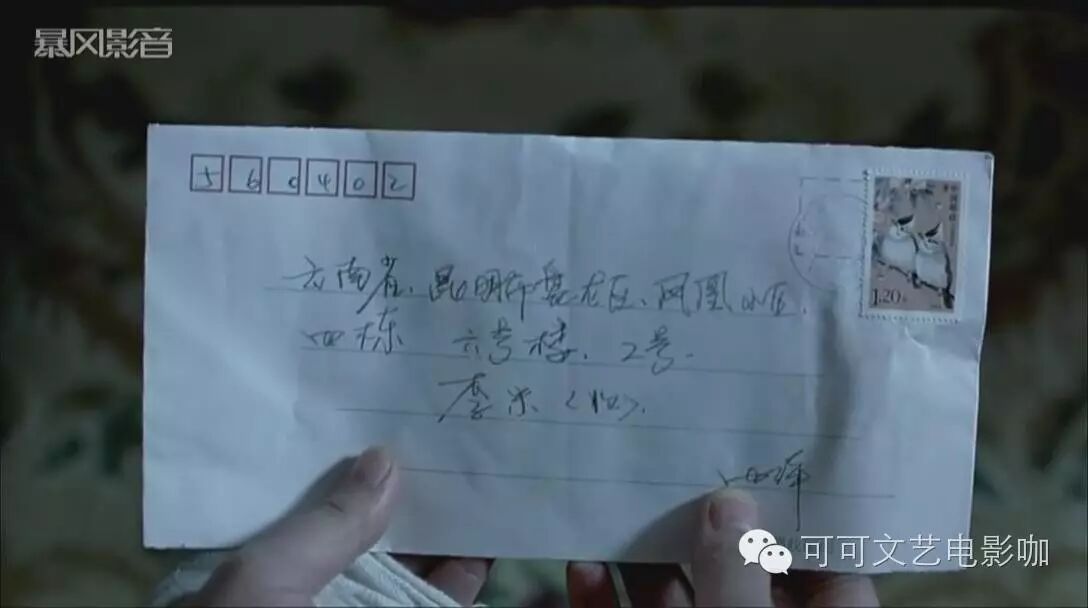 暴风影音
560402
1.20元
云南省、昆明市盘龙区、凤凰小区、
四栋 六号楼、2号.
李米（收）.
可可文艺电影咖